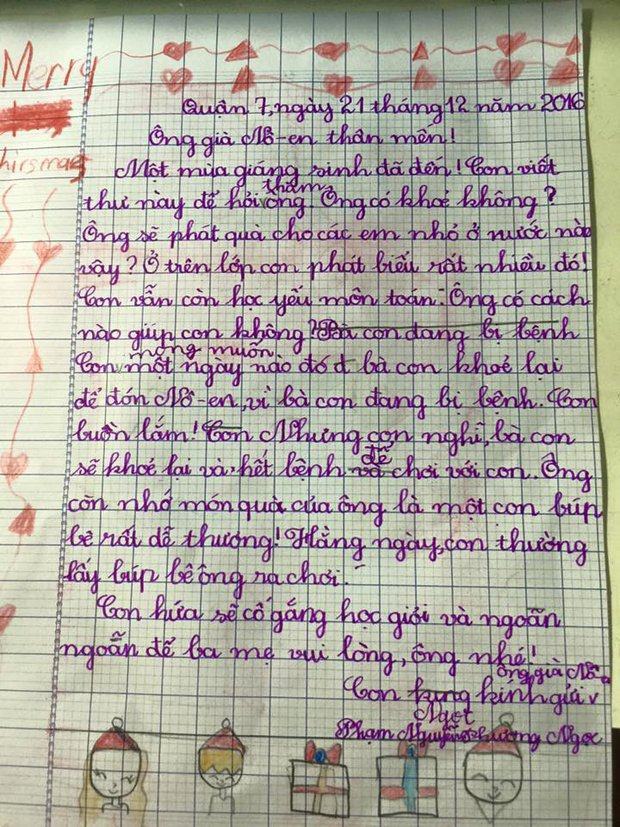 Merry
hirsmas
Quận 7, ngày 21 tháng 12 năm 2016
Ông già Nô-en thân mến!
Một mùa giáng sinh đã đến! Con viết
thư này để hỏi thăm ông. Ông có khoẻ không?
Ông sẽ phát quà cho các em nhỏ ở nước nào
vậy? Ở trên lớp con phát biểu rất nhiều đó!
Con vẫn còn học yếu môn toán. Ông có cách
nào giúp con không? Bà con đang bị bệnh
Con mong muốn một ngày nào đó bà con khoẻ lại
để đón Nô-en, vì bà con đang bị bệnh. Con
buồn lắm! Con Nhưng con nghĩ, bà con
sẽ khoẻ lại và hết bệnh và để chơi với con. Ông
còn nhớ món quà của ông là một con búp
bê rất dễ thương! Hằng ngày, con thường
lấy búp bê ông ra chơi.
Con hứa sẽ cố gắng học giỏi và ngoãn
ngoẵn để ba mẹ vui lòng, ông nhé!
Con kính gửi ông già Nô
Ngọc
Phạm Nguyễn Phương Ngọc